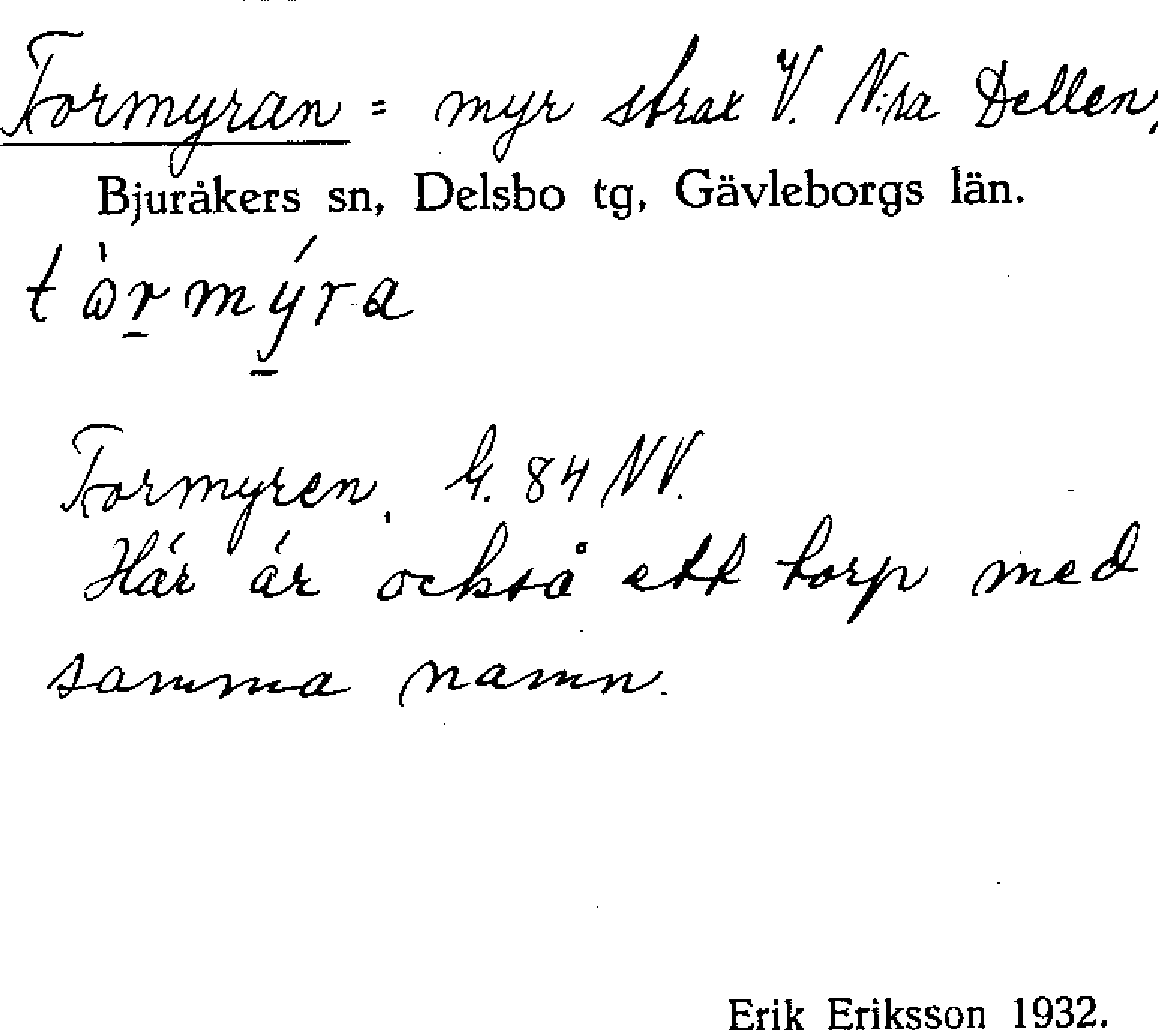 Tormyran = myr strax V. N:ra Dellen,
Bjuråkers sn, Delsbo tg, Gävleborgs län.
tòrmýra
Tormyren, G. 84 NV.
Här är också ett torp med
samma namn.
Erik Eriksson 1932.